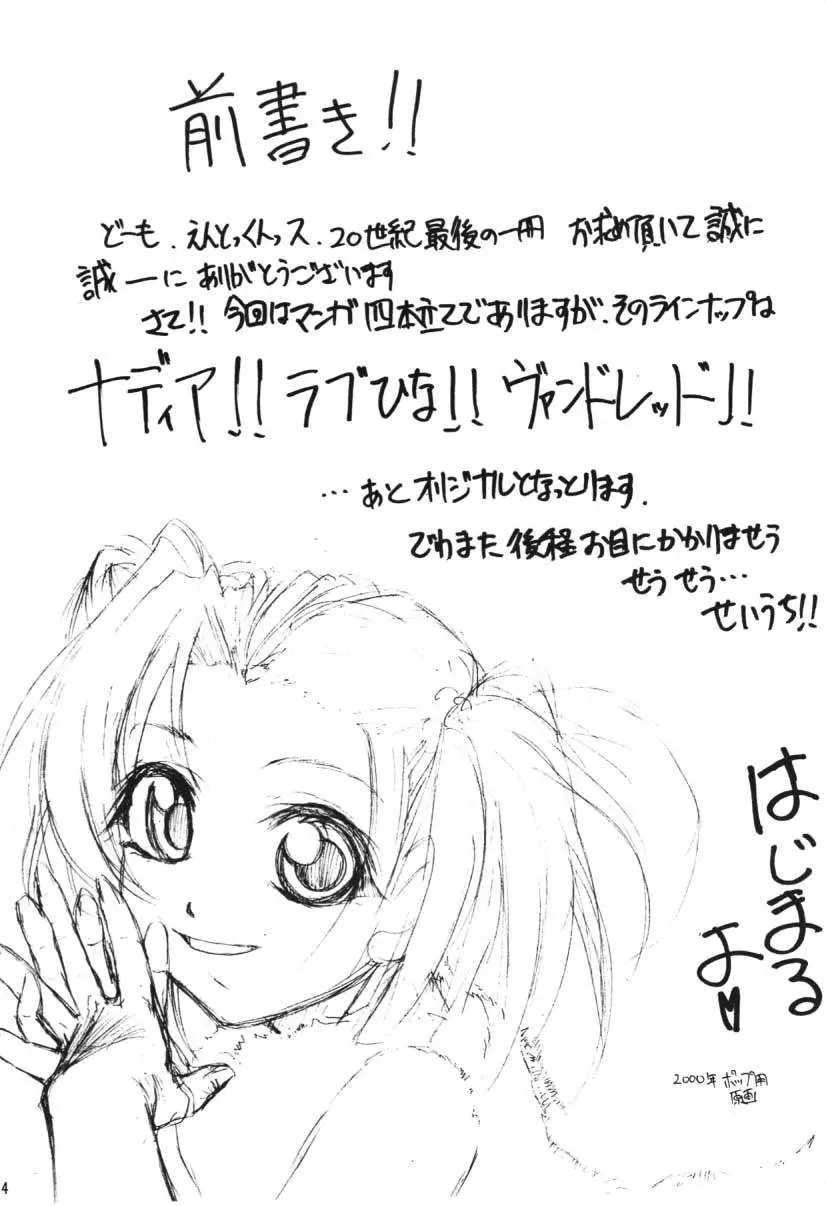 前書き!!
どーも、えんとっくんッス、20世紀最後の一冊 お求め頂いて誠に
誠一に ありがとうございます
さて!! 今回はマンガ四本立てでありますが、そのラインナップは
ナディア!! ラブひな!! ヴァンドレッド!!
…あとオリジナルとなっとります、
でわまた後程お目にかかりませう
せう せう…
せいうち!!
はじまる
よ♥
2000年 ポップ用
原画
4